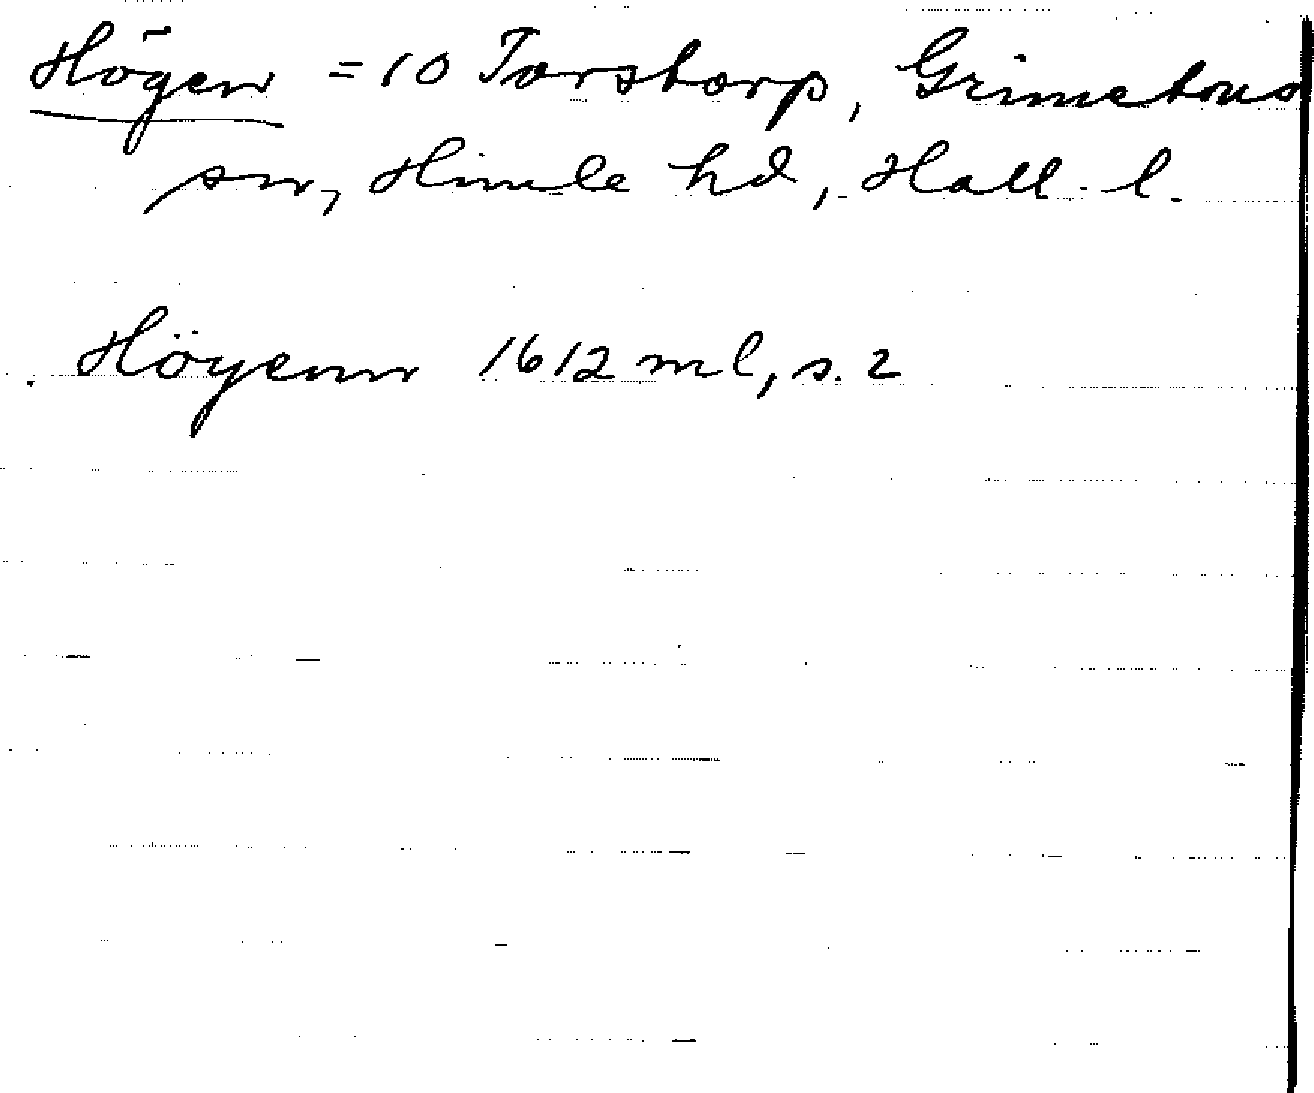 Högen = 10 Torstorp, Grimetons
sn, Himle hd, Hall. l.
Höyenn 1612 ml, s. 2